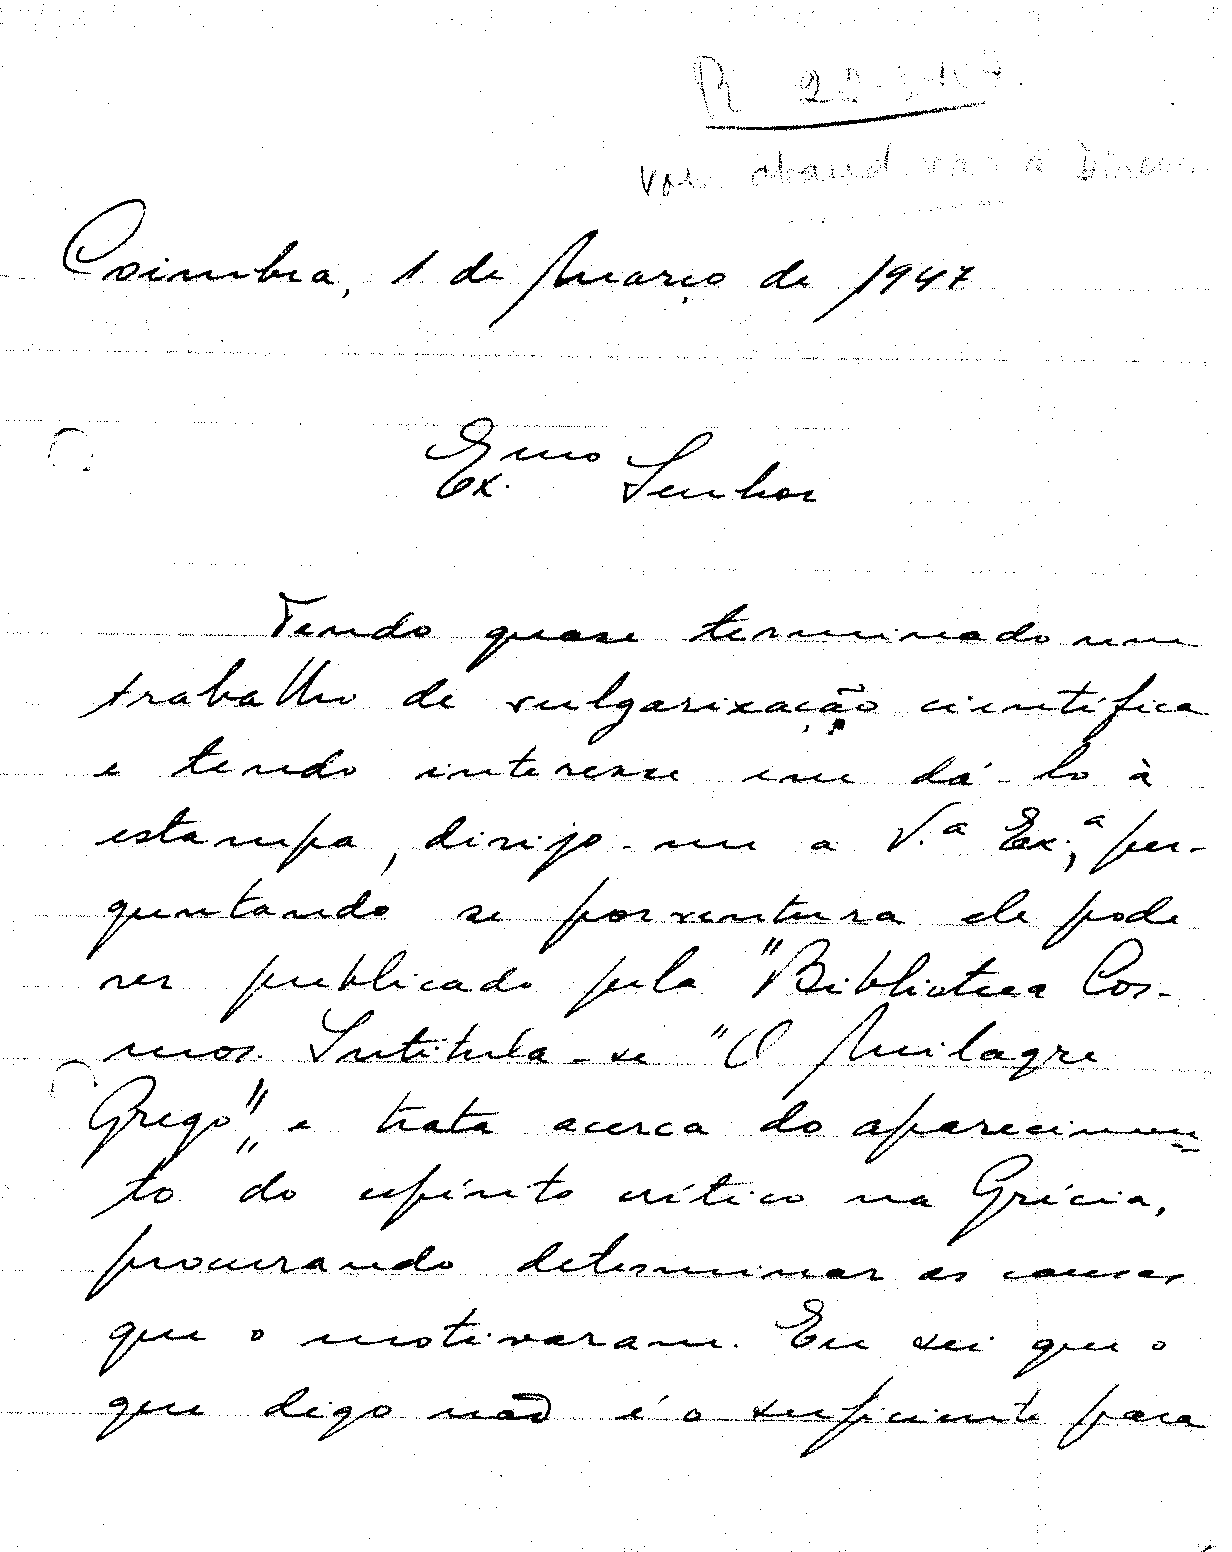 R 22-3-47.
vou à
Coimbra, 1 de Março de 1947
Exmo
Ex. Senhor
Tendo quase terminado um
trabalho de vulgarização científica
e tendo interesse em dá-lo à
estampa, dirijo-me a V.ª Ex.ª, per-
guntando se porventura ele pode
ser publicado pela "Biblioteca Cos-
mos. Intitula-se "O Milagre
Grego", e trata acerca do aparecimen-
to do espírito crítico na Grécia,
procurando determinar as causas
que o motivaram. Eu sei que o
que digo não é o suficiente para